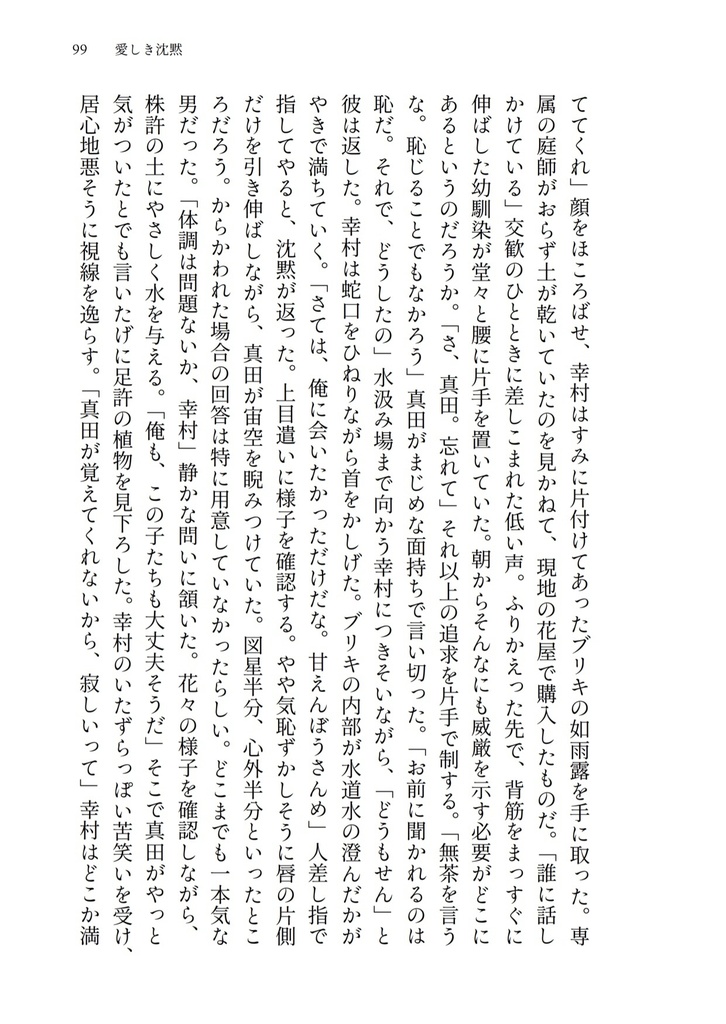 99　愛しき沈黙
ててくれ」顔をほころばせ、幸村はすみに片付けてあったブリキの如雨露を手に取った。専
属の庭師がおらず土が乾いていたのを見かねて、現地の花屋で購入したものだ。「誰に話し
かけている」交歓のひとときに差しこまれた低い声。ふりかえった先で、背筋をまっすぐに
伸ばした幼馴染が堂々と腰に片手を置いていた。朝からそんなにも威厳を示す必要がどこに
あるというのだろうか。「さ、真田。忘れて」それ以上の追求を片手で制する。「無茶を言う
な。恥じることでもなかろう」真田がまじめな面持ちで言い切った。「お前に聞かれるのは
恥だ。それで、どうしたの」水汲み場まで向かう幸村につきそいながら、「どうもせん」と
彼は返した。幸村は蛇口をひねりながら首をかしげた。ブリキの内部が水道水の澄んだかが
やきで満ちていく。「さては、俺に会いたかっただけだな。甘えんぼうさんめ」人差し指で
指してやると、沈黙が返った。上目遣いに様子を確認する。やや気恥ずかしそうに唇の片側
だけを引き伸ばしながら、真田が宙空を睨みつけていた。図星半分、心外半分といったとこ
ろだろう。からかわれた場合の回答は特に用意していなかったらしい。どこまでも一本気な
男だった。「体調は問題ないか、幸村」静かな問いに頷いた。花々の様子を確認しながら、
株許の土にやさしく水を与える。「俺も、この子たちも大丈夫そうだ」そこで真田がやっと
気がついたとでも言いたげに足許の植物を見下ろした。幸村のいたずらっぽい苦笑いを受け、
居心地悪そうに視線を逸らす。「真田が覚えてくれないから、寂しいって」幸村はどこか満